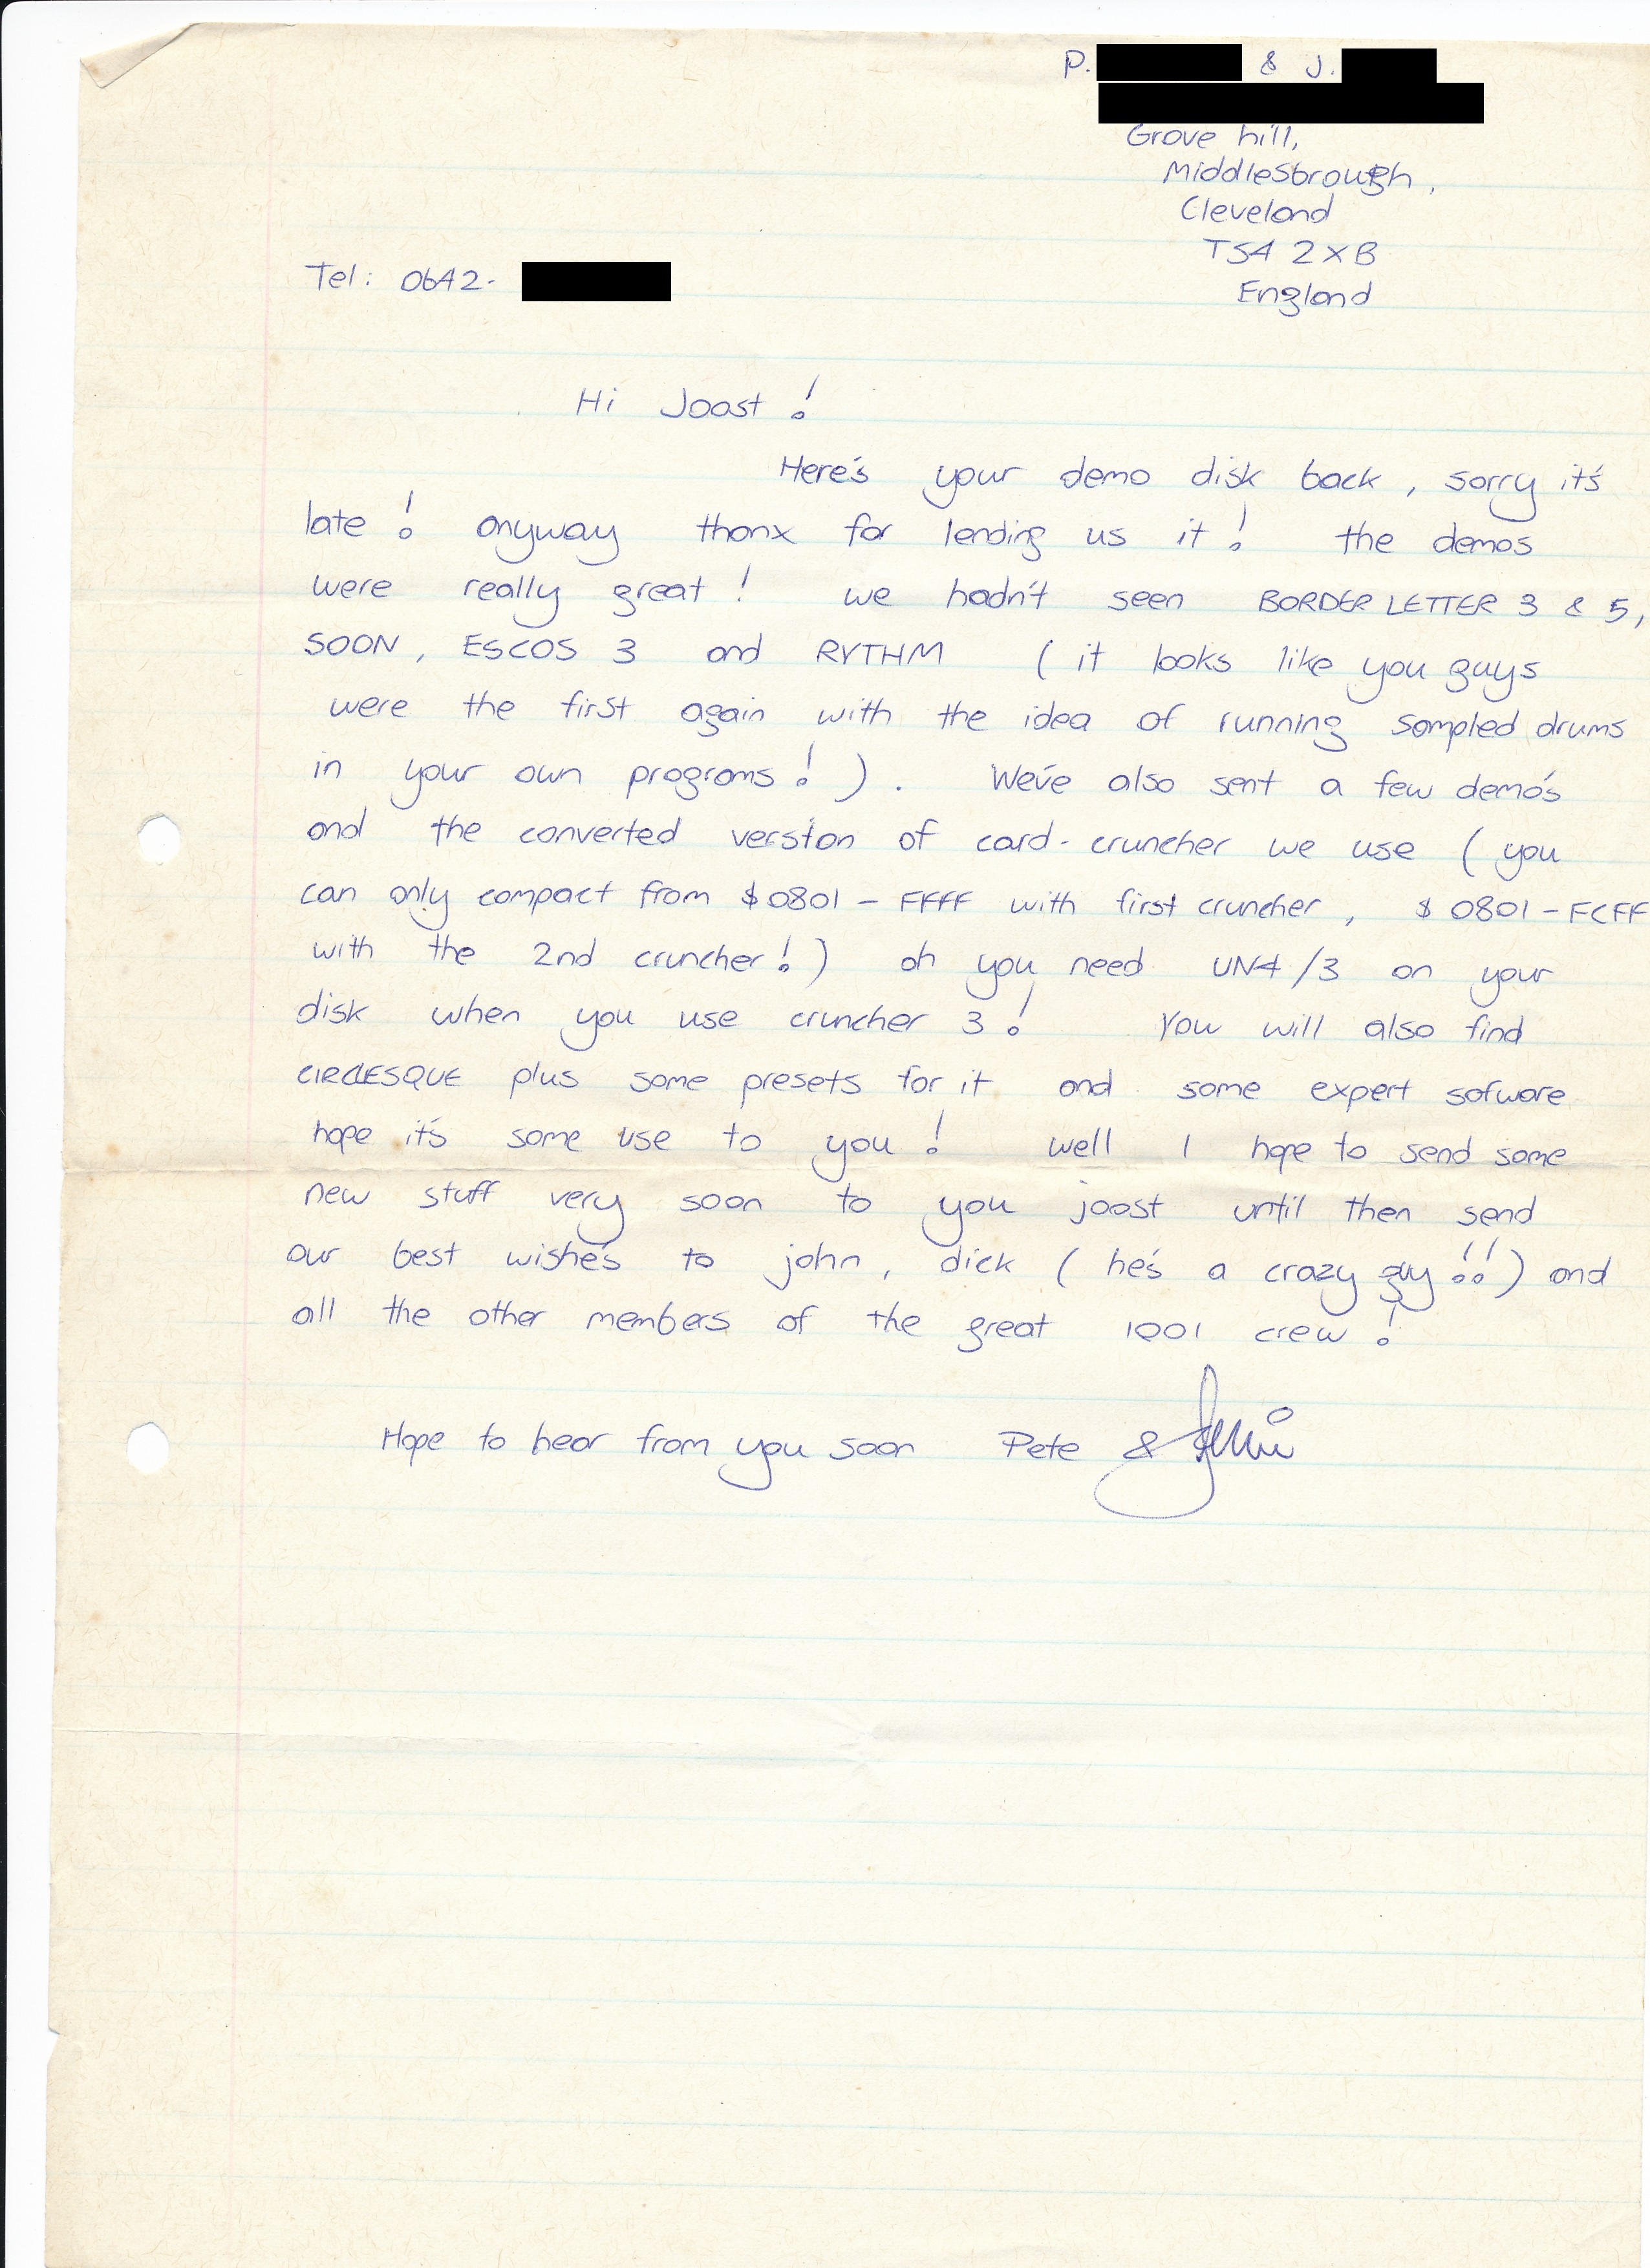 P. & J.
Grove hill,
Middlesbrough,
Cleveland
TS4 2XB
England
Tel: 0642-
Hi Joost!
Here's your demo disk back, sorry it's
late! anyway thanx for lending us it! the demos
were really great! we hadn't seen BORDER LETTER 3 & 5,
SOON, ESCOS 3 and RYTHM (it looks like you guys
were the first again with the idea of running sampled drums
in your own programs!). We've also sent a few demo's
and the converted version of card-cruncher we use (you
can only compact from $0801 - FFFF with first cruncher, $0801 - FCFF
with the 2nd cruncher!) oh you need UN4/3 on your
disk when you use cruncher 3! You will also find
CIRCLESQUE plus some presets for it and some expert sofware
hope it's some use to you! well I hope to send some
new stuff very soon to you joost until then send
our best wishe's to john, dick (he's a crazy guy!!) and
all the other members of the great 1001 crew!
Hope to hear from you soon Pete &